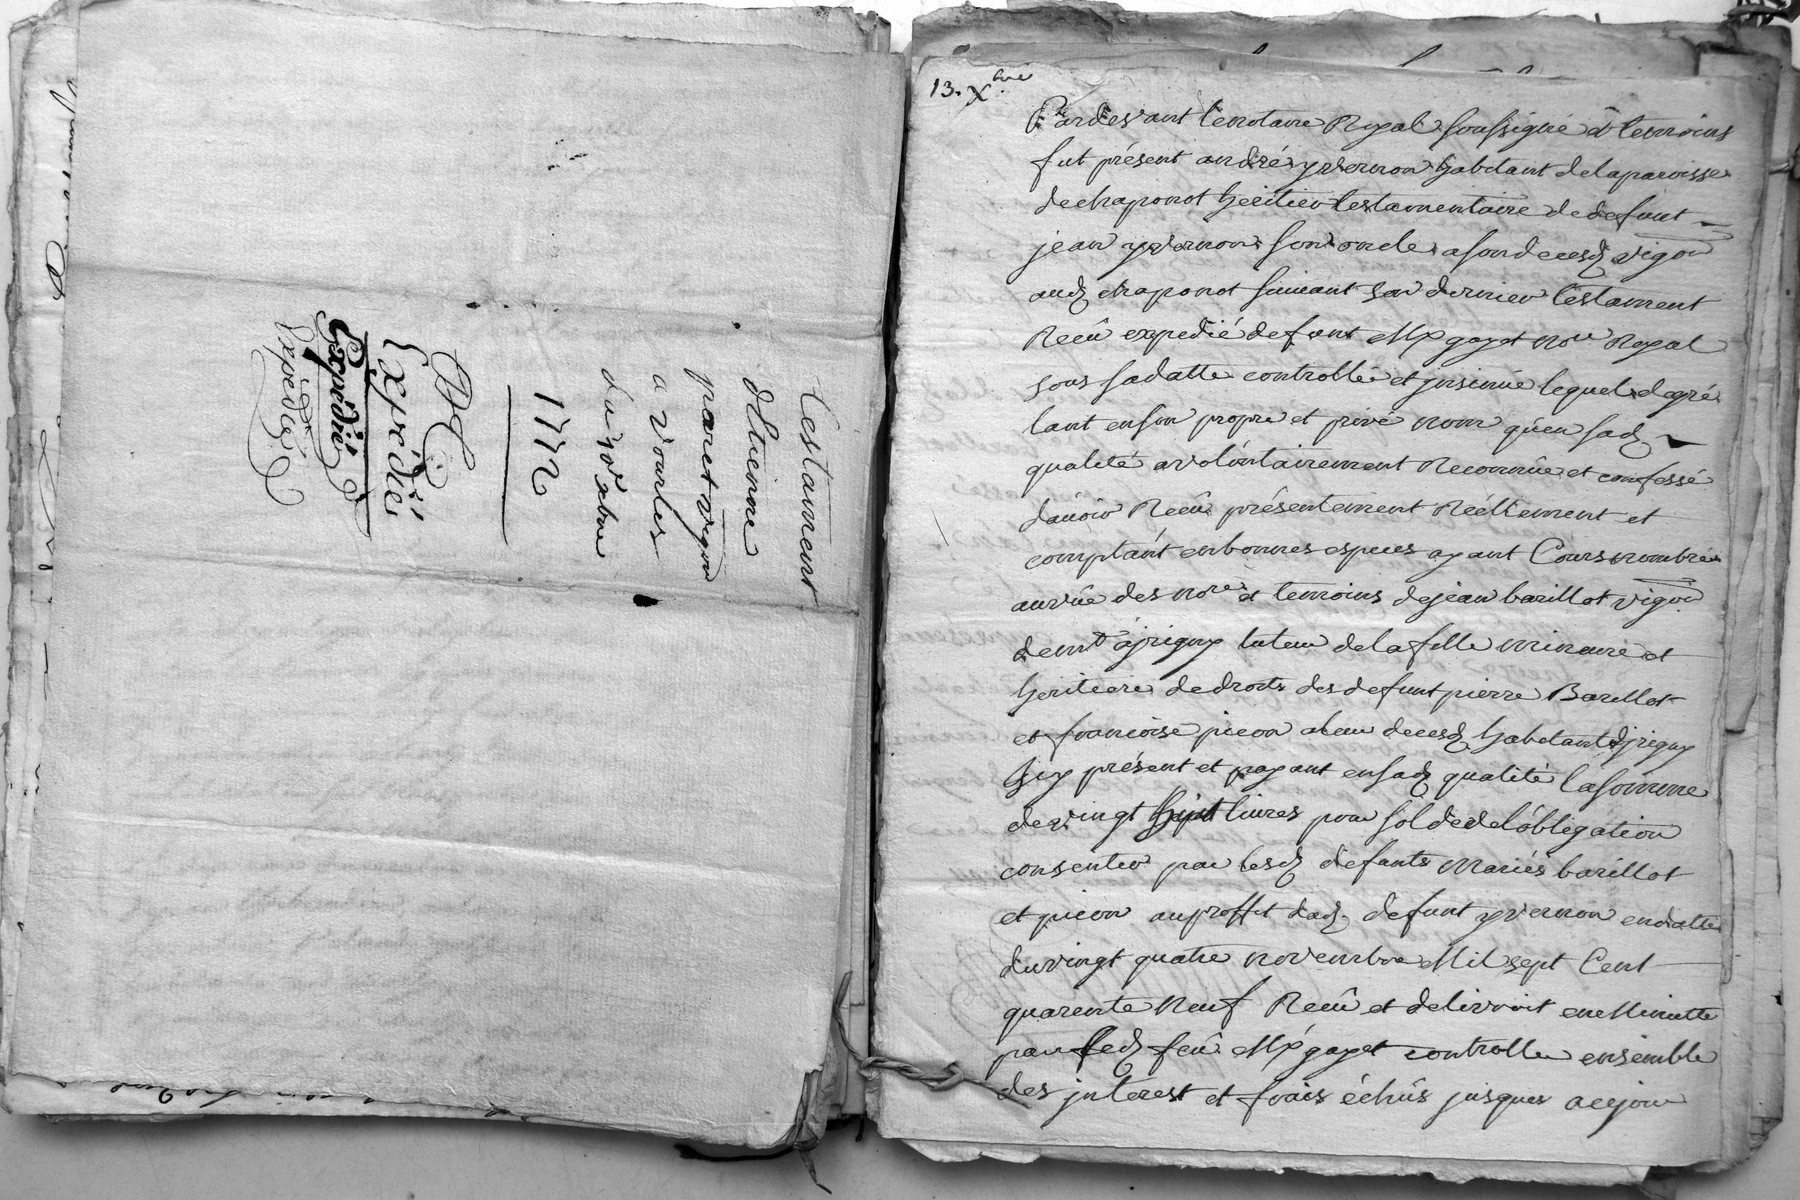 Testament
d'Étienne
paret vigon
a vourles
du 10e xbre
1772
Expédiéé
Expédié
Expédiéé
13. Xbre
Pardevant le notaire Royal soussigné & temoins
fut présent andré yvernon habitant de la paroisse
de chaponot héritier testamentaire de defunt
jean yvernon son oncle a son deces vigon
aud chaponot suivant son dernier testament
Reçû expedié defunt Me gayet nore Royal
sous sa datte controllé et jnsinué lequel de gré
tant en son propre et privé nom qu'en sad
qualité a volontairement Reconnû et confessé
d'avoir Reçû présentement Réellement et
comptant en bonnes especes ayant Cours nombrées
au vûe des nores et temoins de jean barillot vigon
demt a jrigny tuteur de la fille mineure et
héritiere de droits des defunt pierre Barillot
et francoise picon a leur deces habitant d'jrigny
jcy présent et payant en sad qualité la somme
de vingt livres pour solde de l'obligation
consentie par lesd defunts mariés barillot
et picon au proffit dud defunt yvernon en datte
du vingt quatre novembre Mil sept Cent
quarente Neuf Reçû et delivroit en Minutte
par led feû Me gayet controllé ensemble
des jnterest et frais échûs jusques a ce jour